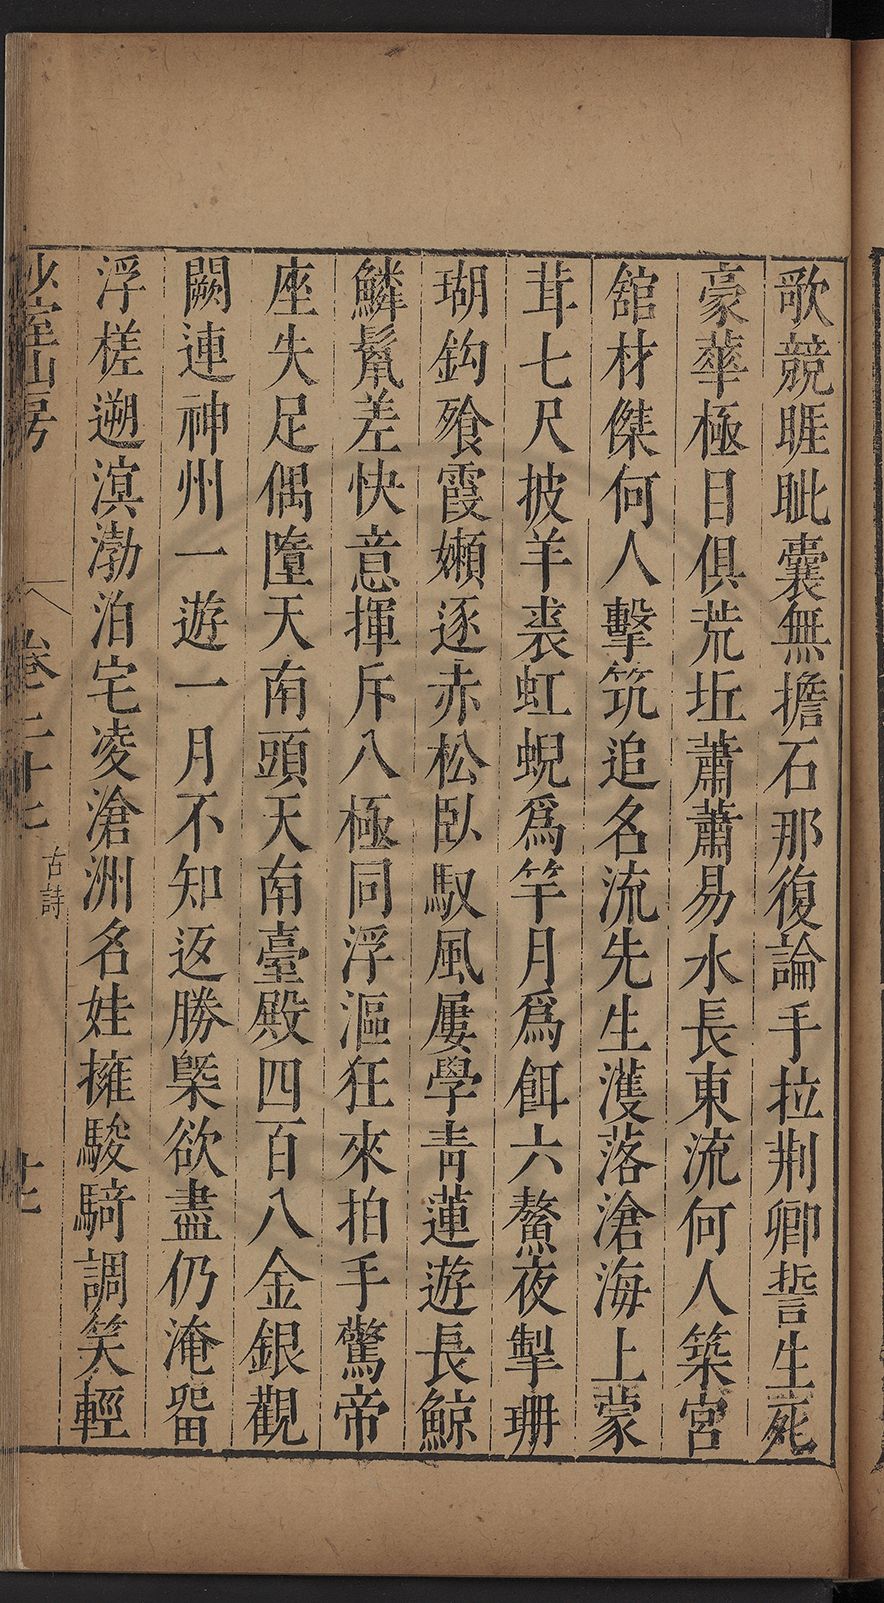 歌競睚眦囊無擔石那復論手拉荆卿誓生死
豪華極目俱荒坵蕭蕭易水長東流何人築宮
舘材傑何人擊筑追名流先生濩落滄海上蒙
茸七尺披羊裘虹蜺爲竿月爲餌六鰲夜掣珊
瑚鈎飱霞嬾逐赤松臥馭風屢學青蓮遊長鯨
鱗鬣差快意揮斥八極同浮漚狂來拍手驚帝
座失足偶墮天南頭天南臺殿四百八金銀觀
闕連神州一遊一月不知返勝槩欲盡仍淹畱
浮槎遡溟渤泊宅凌滄洲名娃擁駿騎調笑輕
少室山房
卷二十七
古詩
廿七